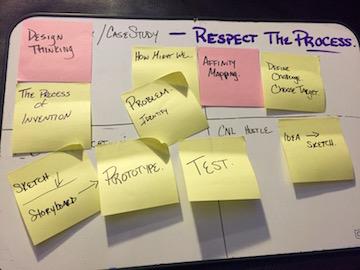 /CASE STUDY — RESPECT THE PROCESS.
DESIGN
THINKING
HOW MIGHT WE..
AFFINITY
MAPPING.
DEFINE
CHALLENGE
CHOOSE TARGET
THE PROCESS
OF
INVENTION
PROBLEM.
IDENTIFY
CNL HUSTLE
IDEA →
SKETCH.
SKETCH
↓
STORYBOARD →
PROTOTYPE.
TEST.